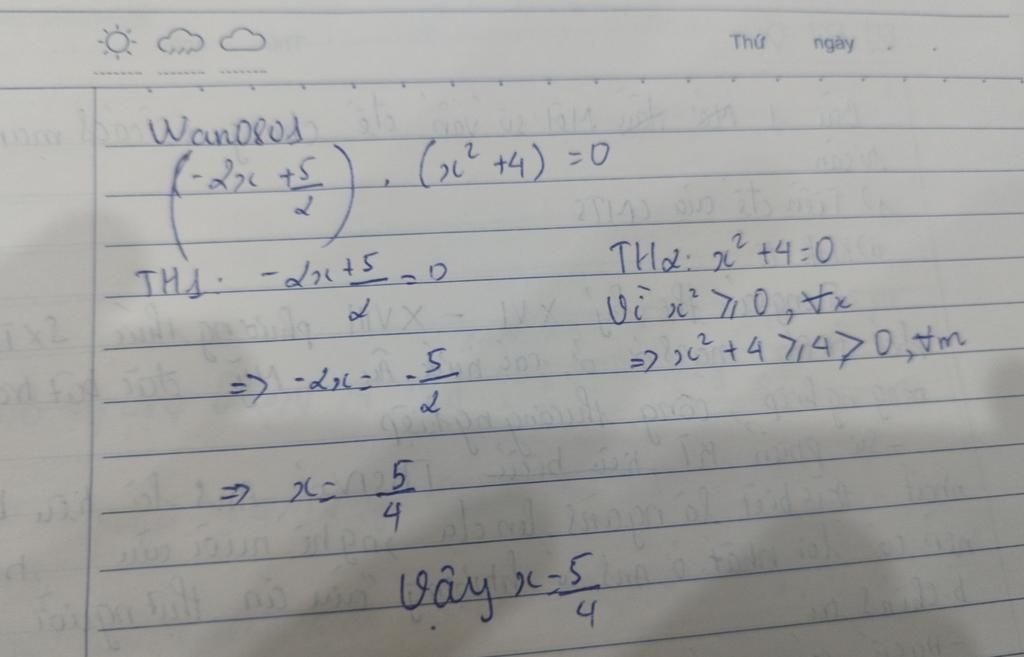 Thứ ngày . .
Wan0801
(-2x + 5/2) . (x² + 4) = 0
TH1: -2x + 5/2 = 0
=> -2x = -5/2
=> x = 5/4
TH2: x² + 4 = 0
Vì x² ⩾ 0, ∀x
=> x² + 4 ⩾ 4 > 0, ∀m
Vậy x = 5/4